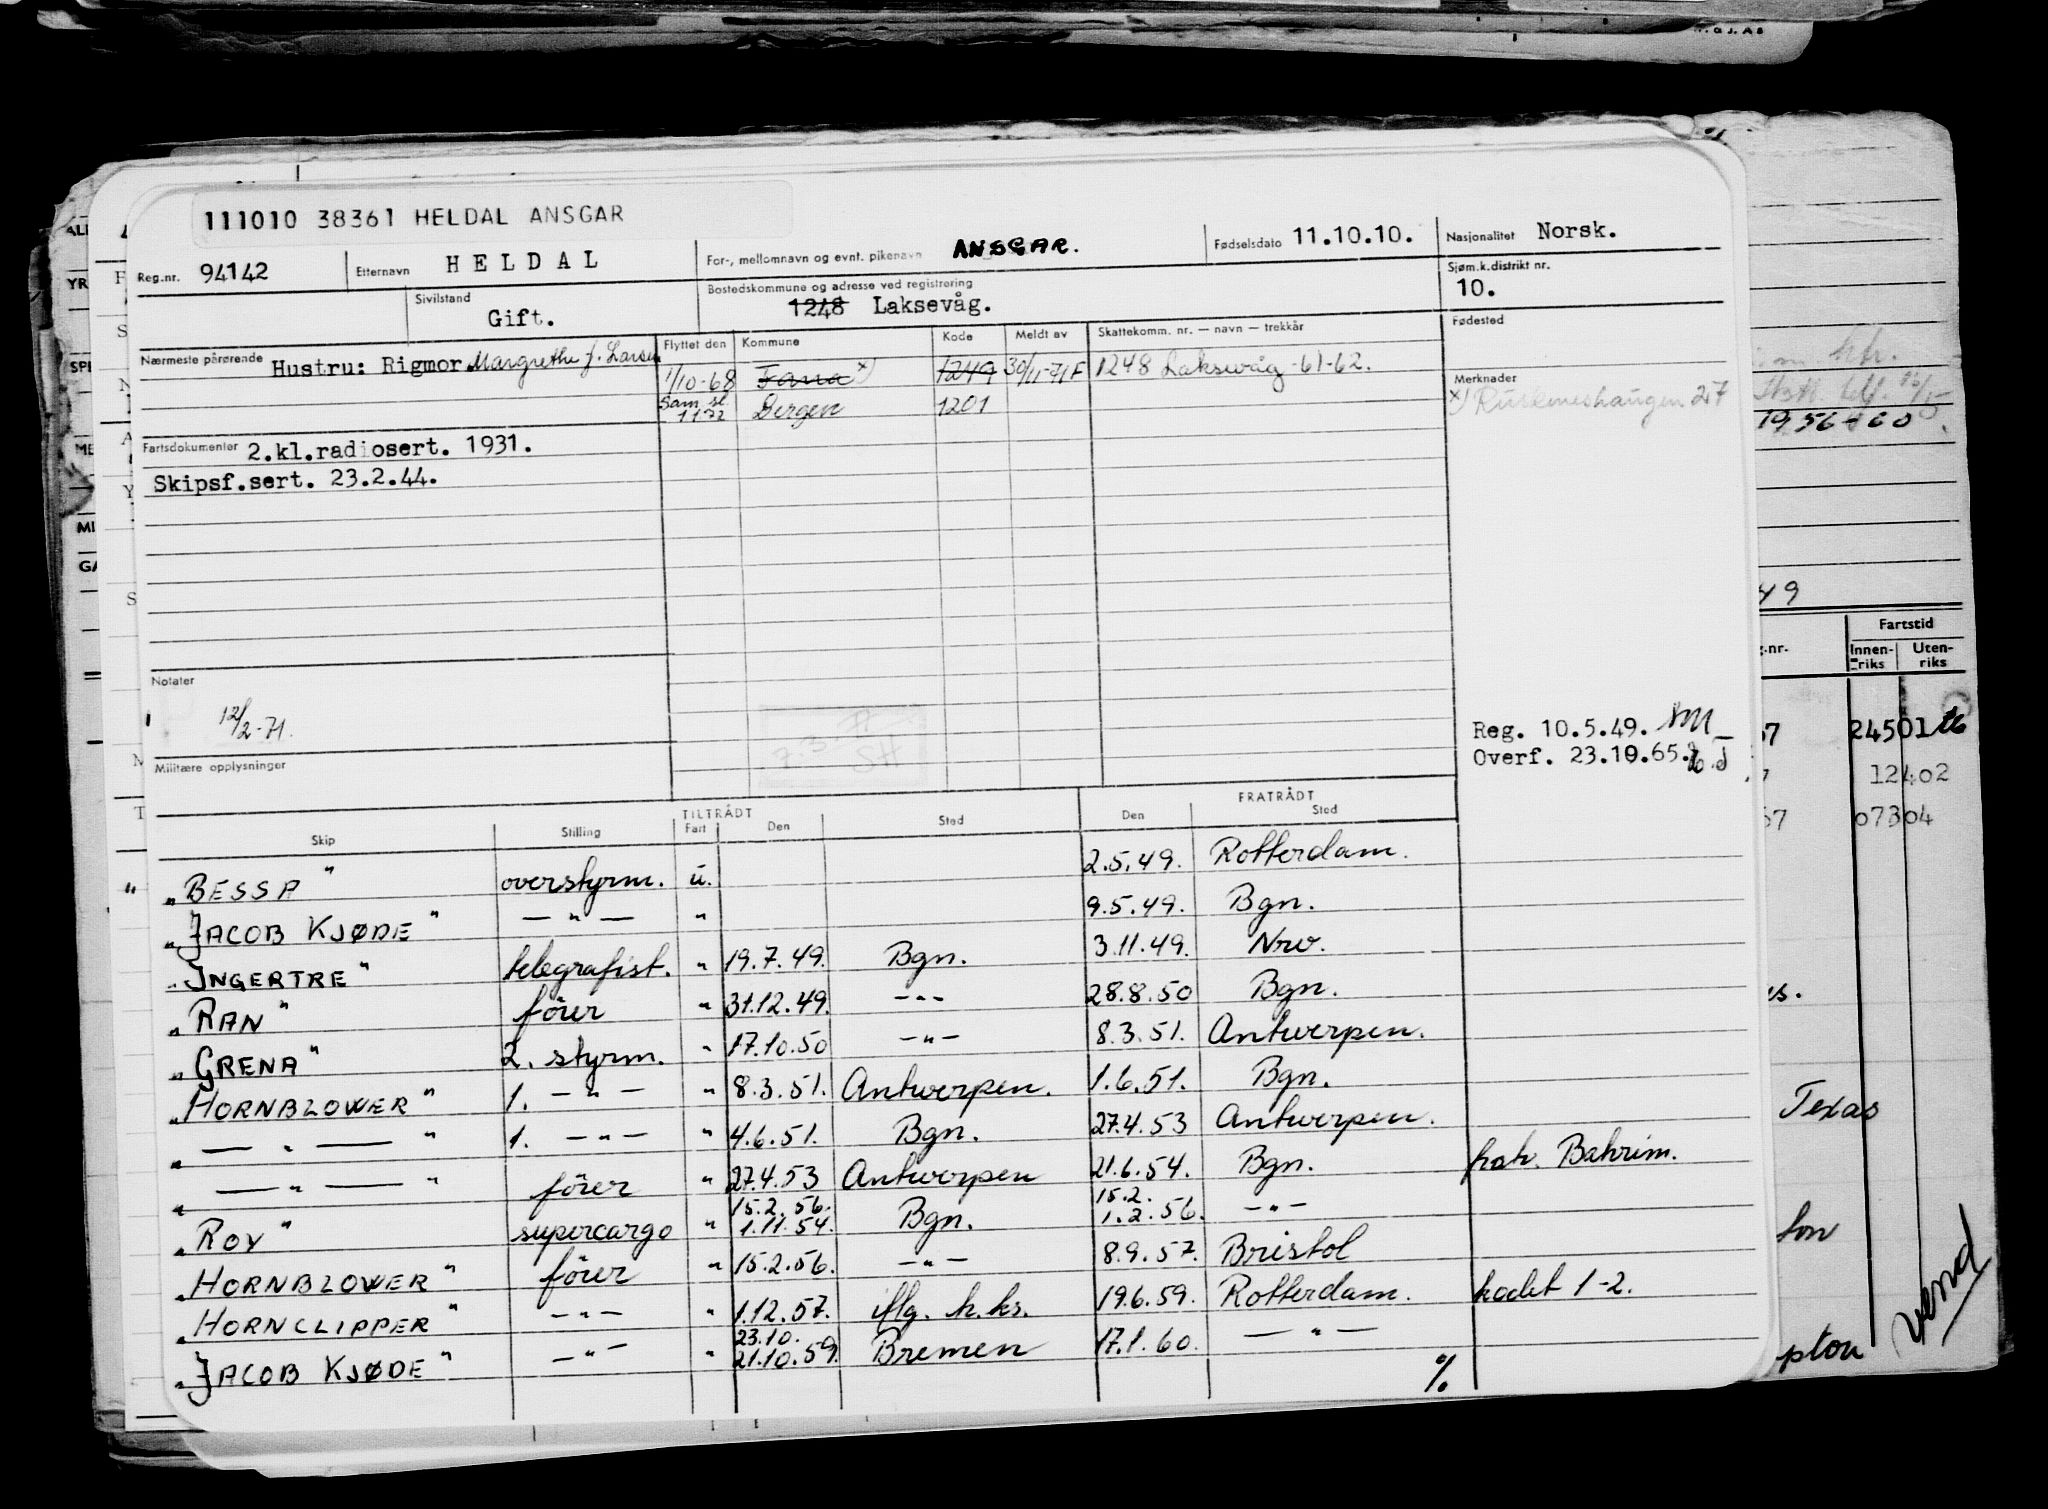 111010 38361 HELDAL ANSGAR
Reg.nr. 94142 Etternavn HELDAL For-, mellomnavn og evnt. pikenavn ANSGAR. Fødselsdato 11.10.10. Nasjonalitet Norsk.
Sivilstand Gift. Bostedskommune og adresse ved registrering 1248 Laksevåg. Sjøm.k.distrikt nr. 10.
Nærmeste pårørende Hustru: Rigmor Margrethe f. Larsen Flyttet den Kommune Kode Meldt av Skattekomm. nr. — navn — trekkår Fødested
1/10-68 Fana x) 1249 30/11-71 F 1248 Laksevåg -61-62. Merknader
Sam. sl. 1172 Bergen 1201 x) Ruskeneshaugen 27
Fartsdokumenter 2.kl.radiosert. 1931.
Skipsf.sert. 23.2.44.
Notater
12/2-71.
Reg. 10.5.49.
Overf. 23.10.65.
Militære opplysninger
TILTRÅDT FRATRÅDT
Skip Stilling Fart Den Sted Den Sted
"BESSA" overstyrm. u. 2.5.49. Rotterdam.
"JACOB KJØDE" — " — " 9.5.49. Bgn.
"INGERTRE" telegrafist. " 19.7.49. Bgn. 3.11.49. Nrv.
"RAN" fører " 31.12.49. — " — 28.8.50 Bgn.
"GRENA" 2. styrm. " 17.10.50 — " — 8.3.51. Antwerpen.
"HORNBLOWER" 1. — " — " 8.3.51. Antwerpen. 1.6.51. Bgn.
" — " — " 1. — " — " 4.6.51. Bgn. 27.4.53 Antwerpen.
" — " — " fører " 27.4.53 Antwerpen 21.6.54. Bgn. pah. Bahrim.
15.2.56. 15.2.
"ROY" supercargo " 1.11.54. Bgn. 1.2.56. — " —
"HORNBLOWER" fører " 15.2.56. — " — 8.9.57. Bristol
"HORNCLIPPER" — " — " 1.12.57. iflg. h.ks. 19.6.59. Rotterdam. kodet 1-2.
23.10.
"JACOB KJØDE" — " — " 21.10.59. Bremen 17.1.60. — " —
%
1956-60
49
Fartstid
g.nr. Innen-riks Uten-riks
24501
12402
07304
Texas
ton
pton
vend